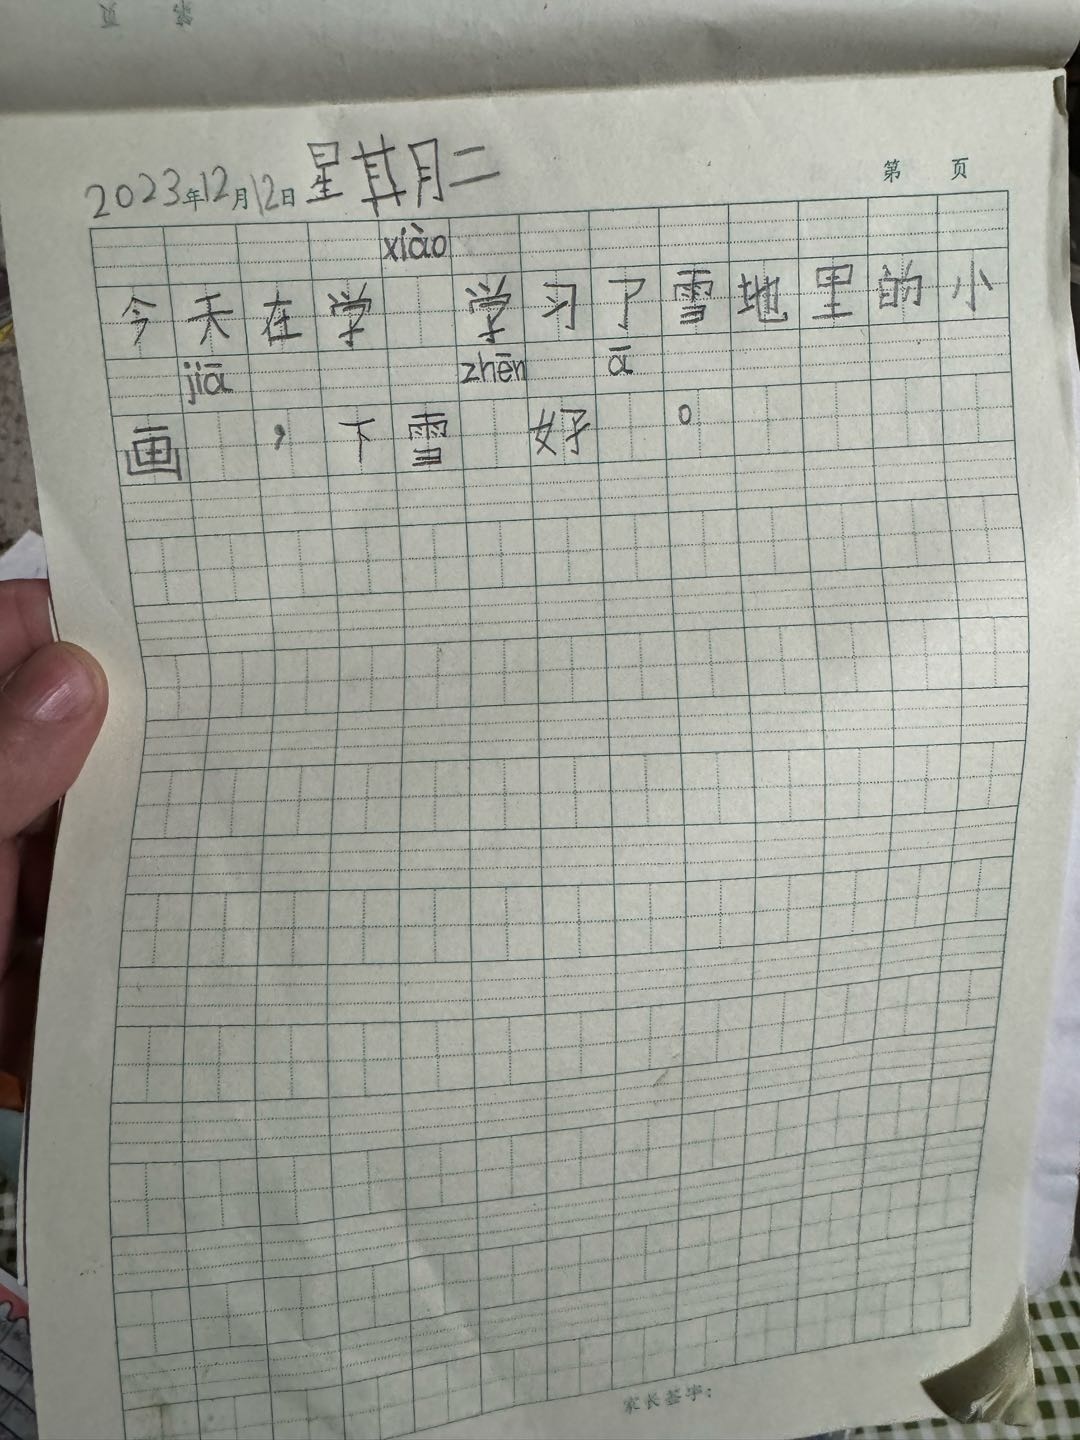 页 第
2023年12月12日 星期二
第 页
xiào
今天在学 学习了雪地里的小
jiā zhēn ā
画 ，下雪 好 。
家长签字：